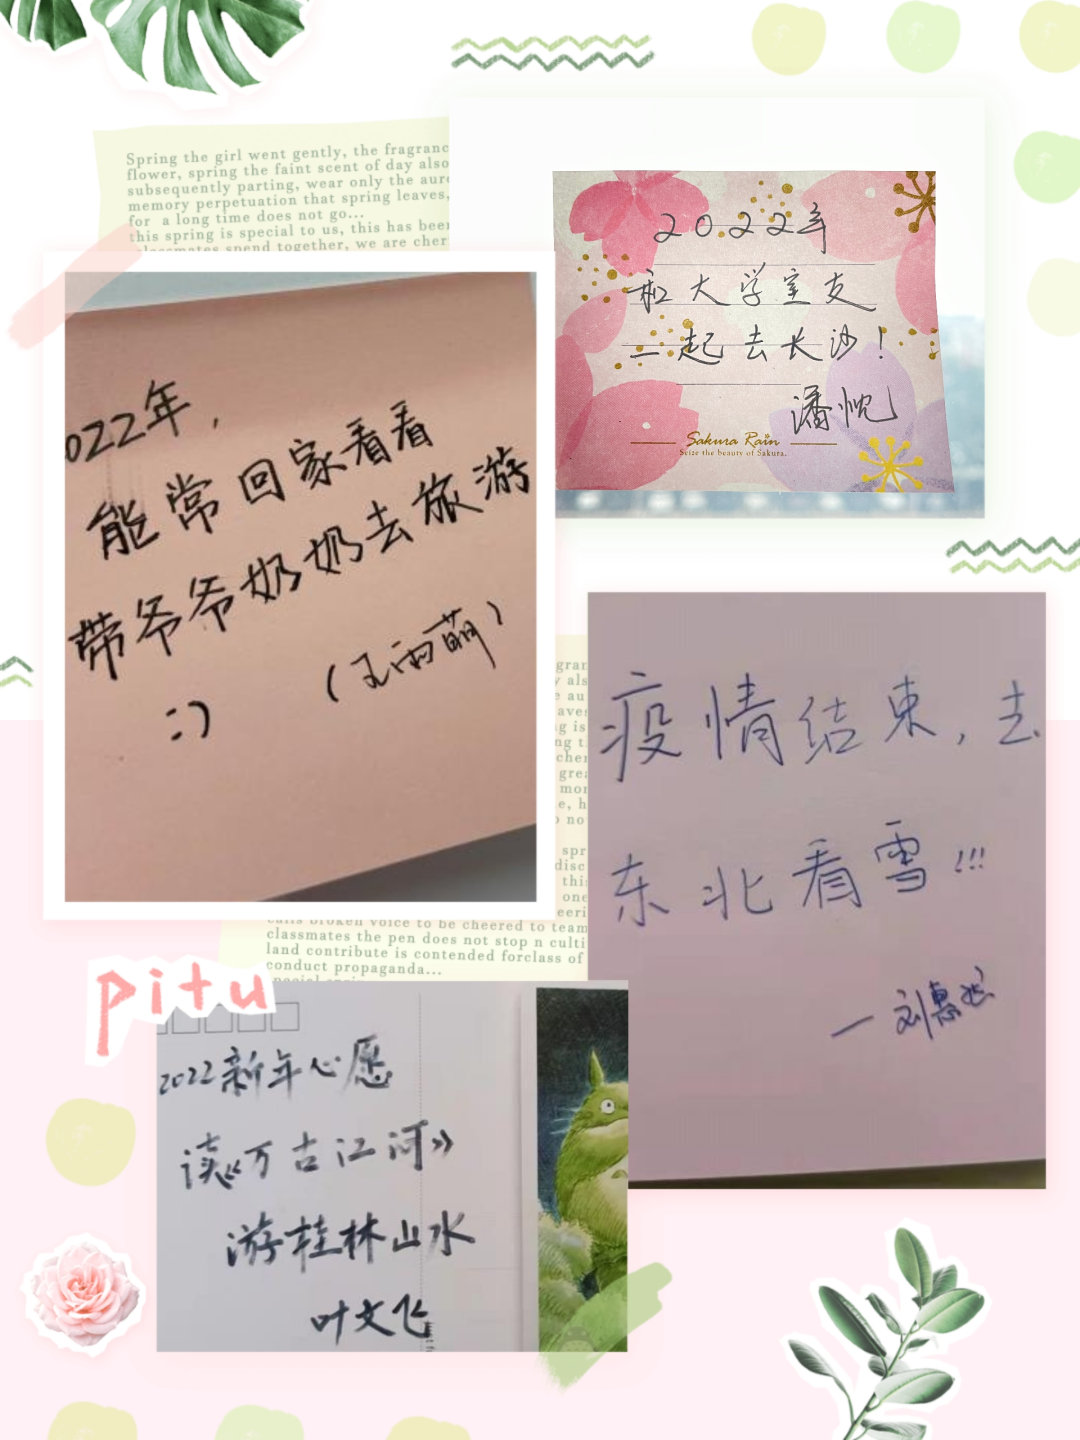 Spring the girl went gently, the fragranc
flower, spring the faint scent of day also
subsequently parting, wear only the aure
memory perpetuation that spring leaves,
for a long time does not go...
this spring is special to us, this has been
classmates spend together, we are cher
2022年
和大学室友
一起去长沙!
潘忱
Sakura Rain
Seize the beauty of Sakura.
022年,
能常回家看看
带爷爷奶奶去旅游
(王雨萌)
:)
疫情结束,去
东北看雪!!!
—刘惠
calls broken voice to be cheered to team
classmates the pen does not stop n culti
land contribute is contended forclass of
conduct propaganda...
pitu
2022新年心愿
读《万古江河》
游桂林山水
叶文飞